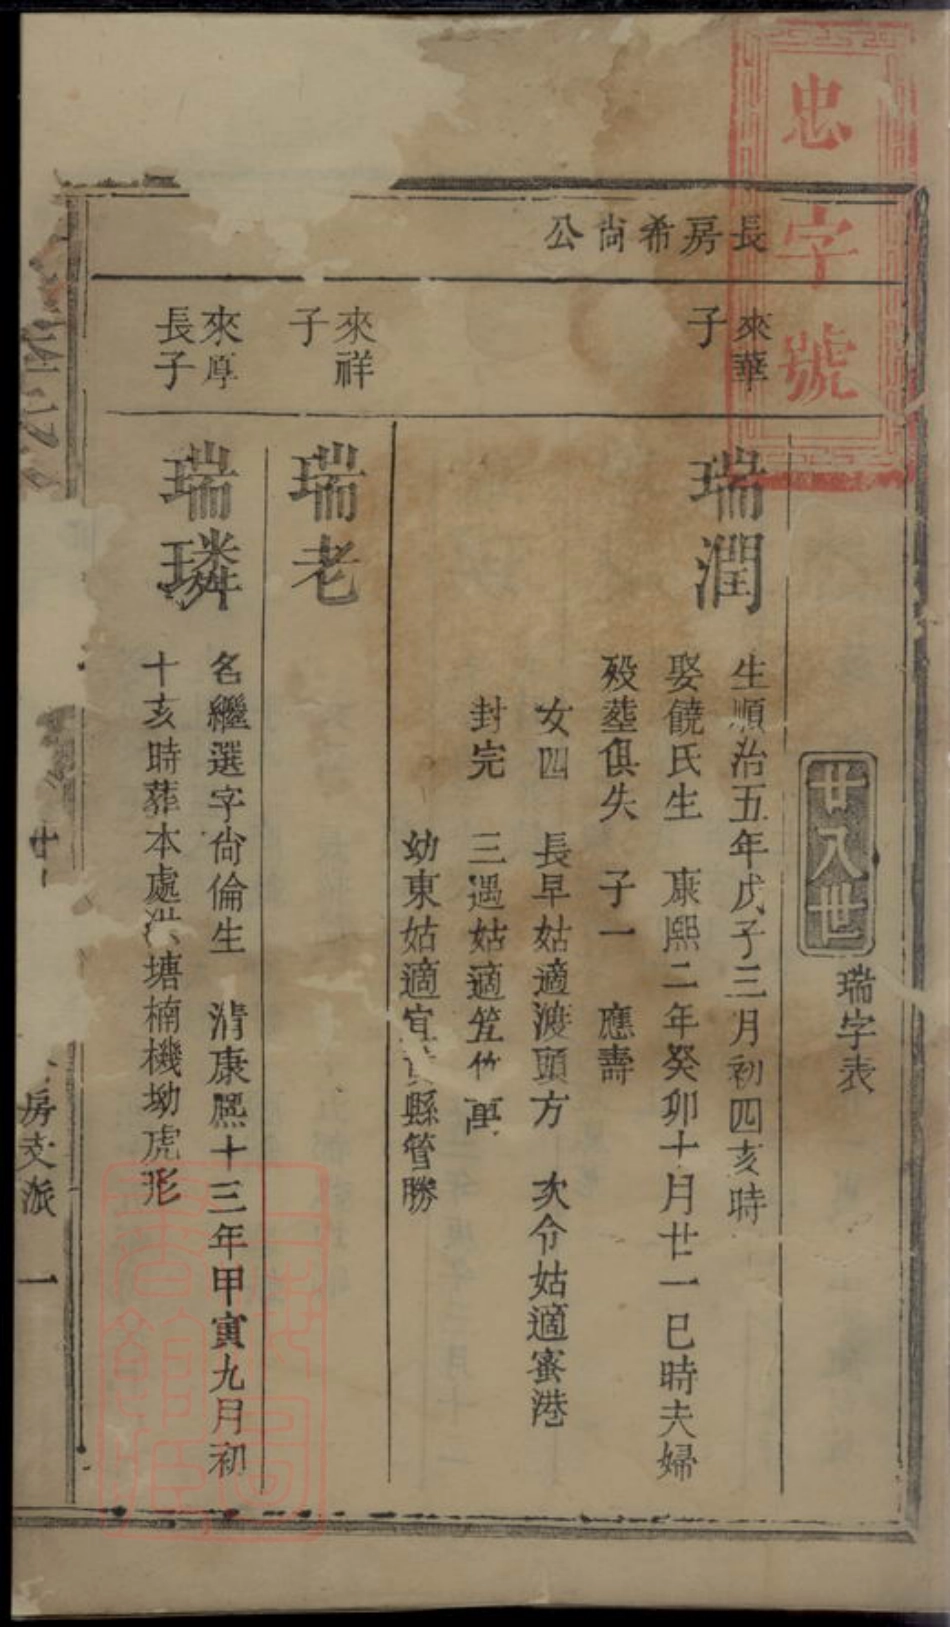 忠字號
長房希尚公
廿八世
瑞字表
來華
子
瑞潤
生順治五年戊子三月初四亥時
娶饒氏生 康熙二年癸卯十月廿一巳時夫婦
歿塟俱失 子一 應壽
女四 長早姑適渡頭方 次令姑適蜜港
封完 三遇姑適笠竹 萬
幼東姑適宜黃縣管勝
來祥
子
瑞老
來厚
長子
瑞璘
名繼選字尙倫生 清康熈十三年甲寅九月初
十亥時葬本處洪塘楠機坳虎形
房支派 一